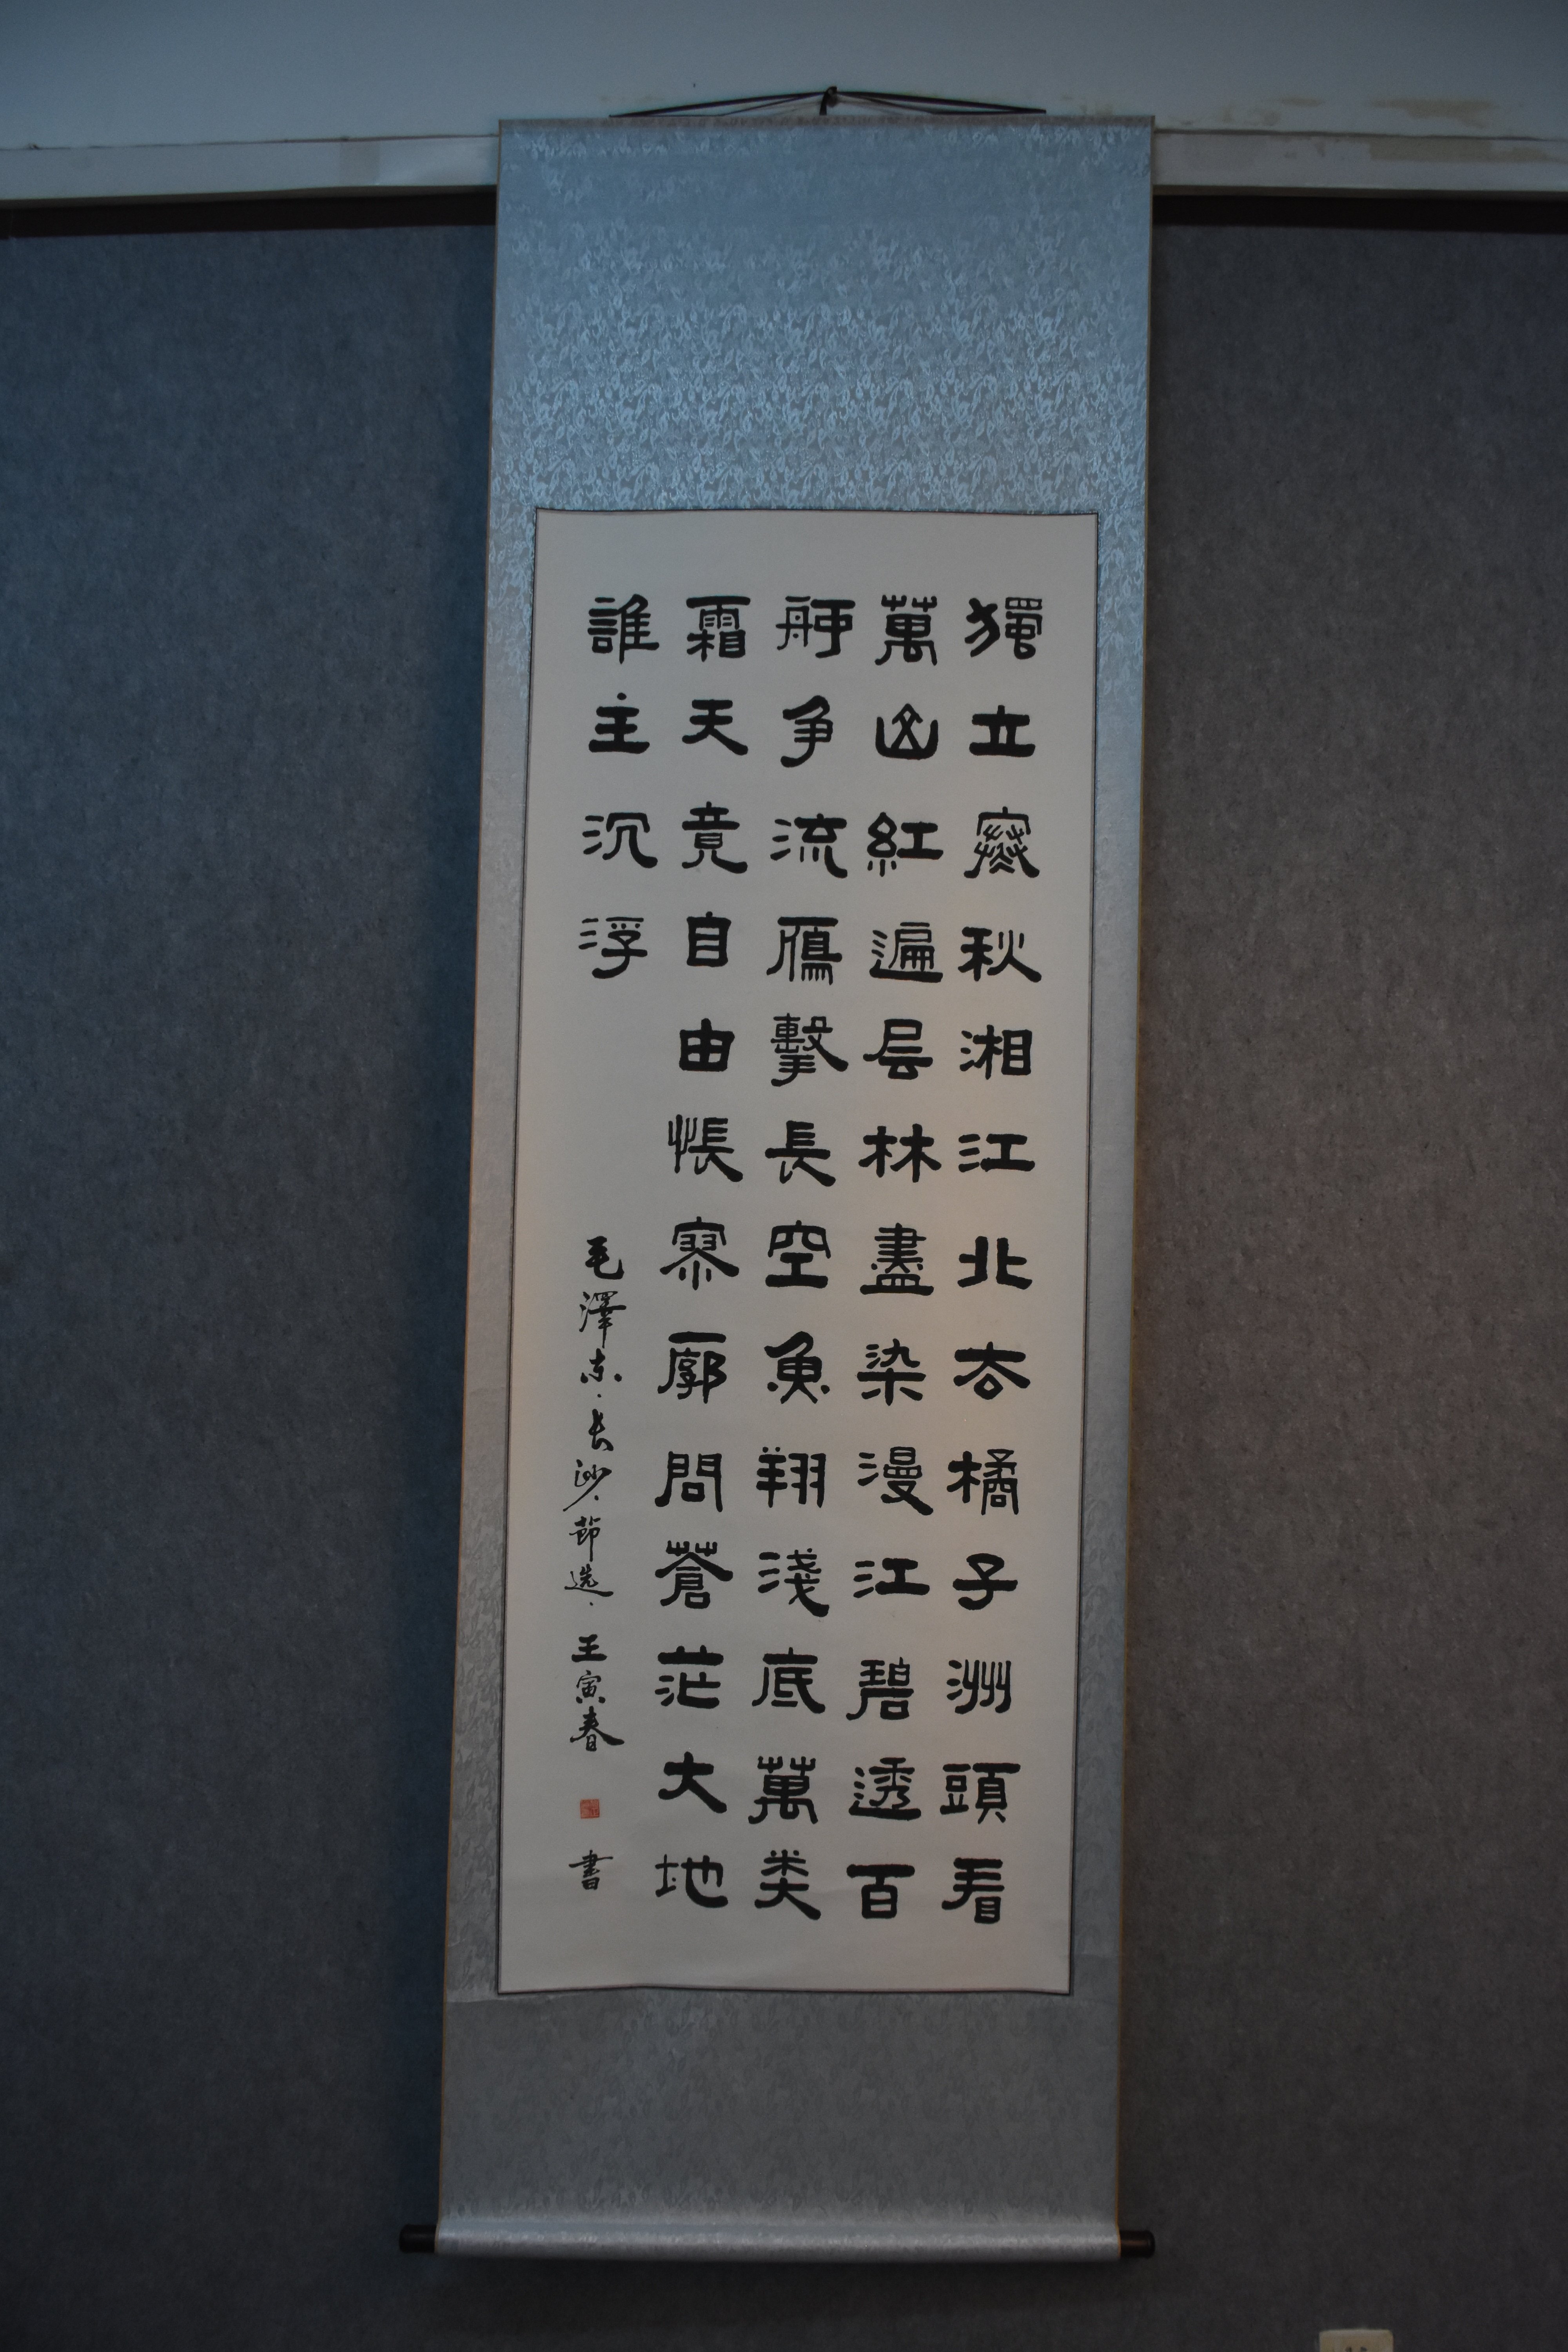 獨立寒秋湘江北去橘子洲頭看
萬山紅遍层林盡染漫江碧透百
舸争流鴈擊長空魚翔淺底萬类
霜天竟自由悵寥廓問蒼茫大地
誰主沉浮
毛澤东·长沙·節选·壬寅春 書